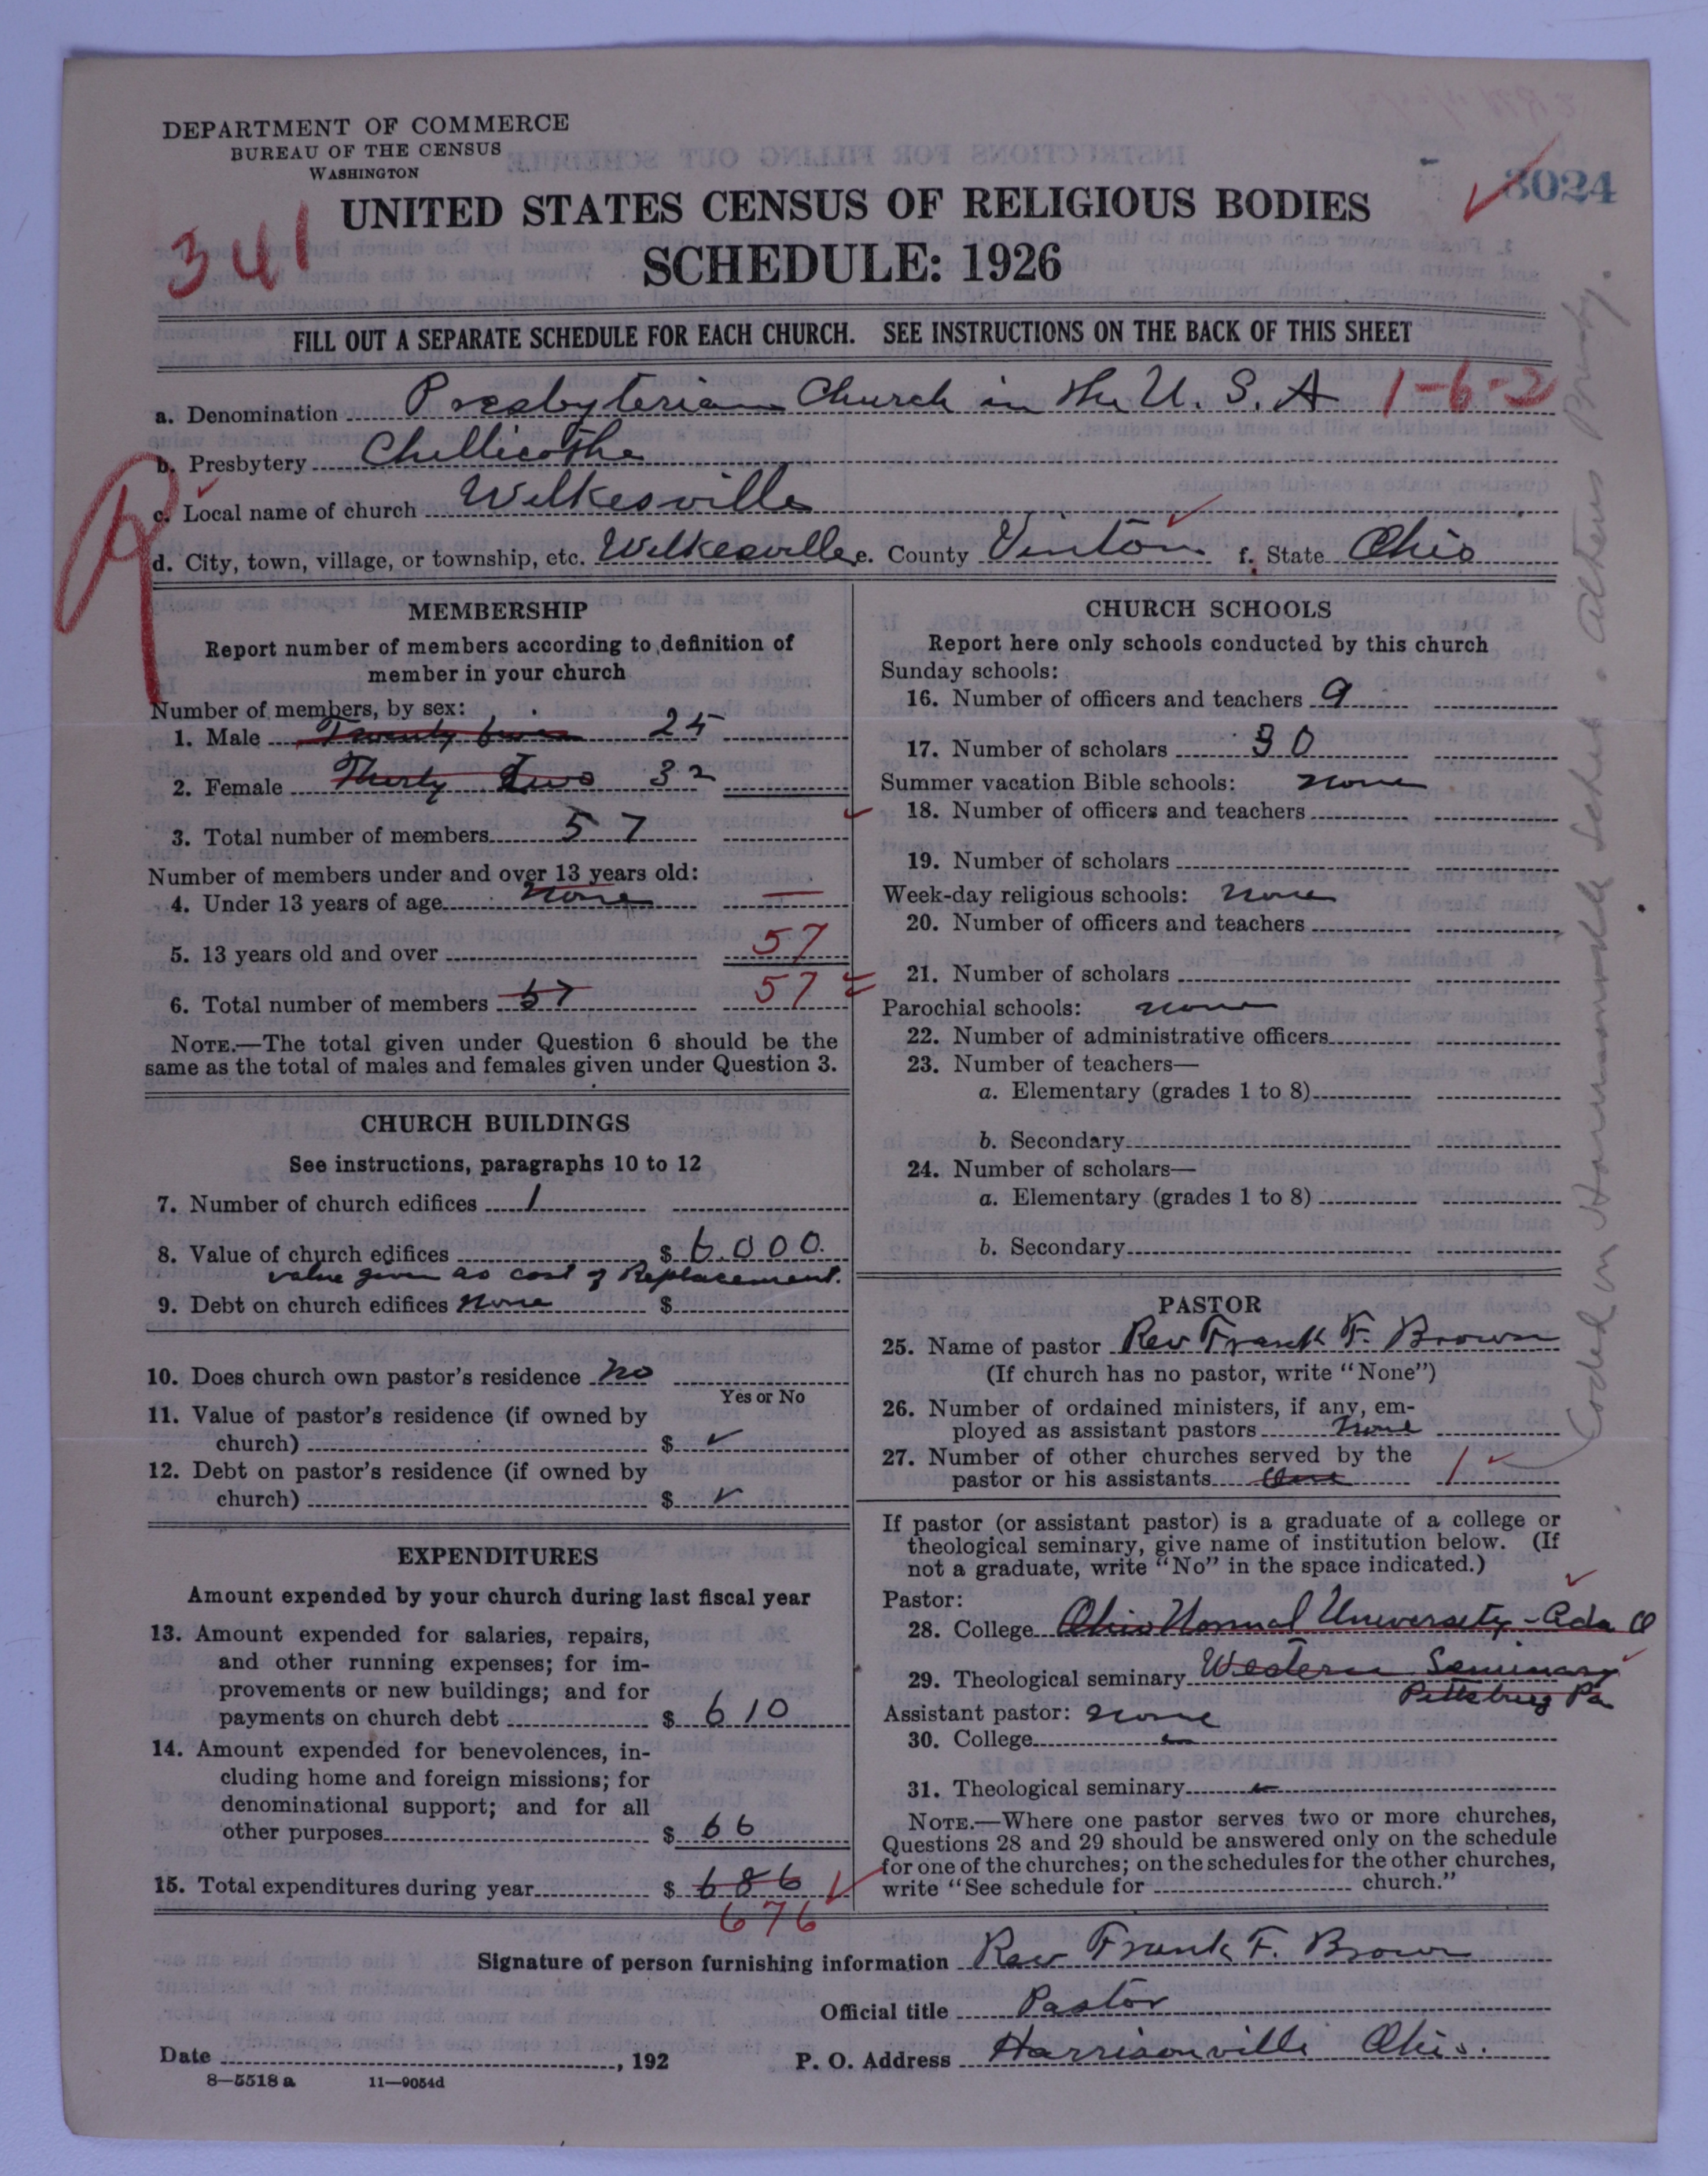 DEPARTMENT OF COMMERCE
BUREAU OF THE CENSUS
WASHINGTON
8024
UNITED STATES CENSUS OF RELIGIOUS BODIES
341
SCHEDULE: 1926
FILL OUT A SEPARATE SCHEDULE FOR EACH CHURCH. SEE INSTRUCTIONS ON THE BACK OF THIS SHEET
a. Denomination Presbyterian Church in the U. S. A 1-6-2
b. Presbytery Chillicothe
c. Local name of church Wilkesville
d. City, town, village, or township, etc. Wilkesville e. County Vinton f. State Ohio
MEMBERSHIP
Report number of members according to definition of
member in your church
Number of members, by sex:
1. Male Twenty five 25
2. Female Thirty Two 32
3. Total number of members 57
Number of members under and over 13 years old:
4. Under 13 years of age none —
5. 13 years old and over 57
6. Total number of members 57 57
NOTE.—The total given under Question 6 should be the
same as the total of males and females given under Question 3.
CHURCH BUILDINGS
See instructions, paragraphs 10 to 12
7. Number of church edifices 1
8. Value of church edifices $ 6000.
value given as cost of Replacement.
9. Debt on church edifices None $
10. Does church own pastor's residence no
Yes or No
11. Value of pastor's residence (if owned by
church) $ ✓
12. Debt on pastor's residence (if owned by
church) $ ✓
EXPENDITURES
Amount expended by your church during last fiscal year
13. Amount expended for salaries, repairs,
and other running expenses; for im-
provements or new buildings; and for
payments on church debt $ 610
14. Amount expended for benevolences, in-
cluding home and foreign missions; for
denominational support; and for all
other purposes $ 66
15. Total expenditures during year $ 686
676
CHURCH SCHOOLS
Report here only schools conducted by this church
Sunday schools:
16. Number of officers and teachers 9
17. Number of scholars 90
Summer vacation Bible schools: none
18. Number of officers and teachers
19. Number of scholars
Week-day religious schools: none
20. Number of officers and teachers
21. Number of scholars
Parochial schools: none
22. Number of administrative officers
23. Number of teachers—
a. Elementary (grades 1 to 8)
b. Secondary
24. Number of scholars—
a. Elementary (grades 1 to 8)
b. Secondary
PASTOR
25. Name of pastor Rev Frank F. Brown
(If church has no pastor, write "None")
26. Number of ordained ministers, if any, em-
ployed as assistant pastors None
27. Number of other churches served by the
pastor or his assistants One 1
If pastor (or assistant pastor) is a graduate of a college or
theological seminary, give name of institution below. (If
not a graduate, write "No" in the space indicated.)
Pastor:
28. College Ohio Normal University - Ada O
29. Theological seminary Western Seminary
Pittsburg Pa
Assistant pastor: none
30. College
31. Theological seminary
NOTE.—Where one pastor serves two or more churches,
Questions 28 and 29 should be answered only on the schedule
for one of the churches; on the schedules for the other churches,
write "See schedule for church."
Signature of person furnishing information Rev Frank F. Brown
Official title Pastor
Date , 192 P. O. Address Harrisonville Ohio.
8—5518 a 11—9054d
Coded on Harrisonville Sched. Athens Presby.